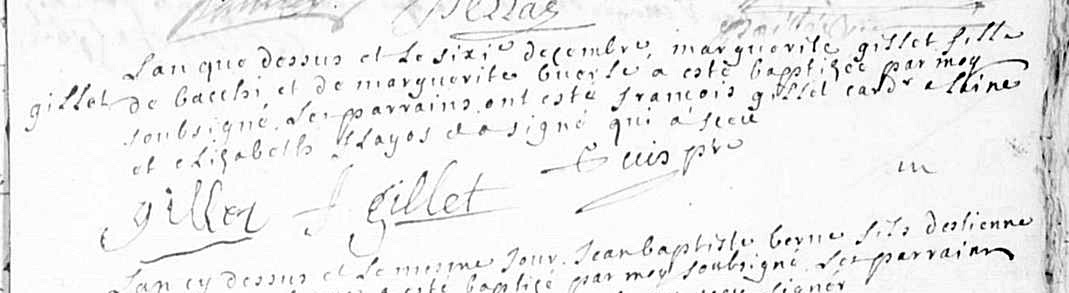 Lan que dessus et le sixi^e decembre, marguerite gillet fille
gillet de bacchi et de marguerite buerle a esté baptizée par moy
soubsigné. Les parrains ont esté françois gillet card^r a laine
et elizabeth Flayos et a signé qui a sceu
Guis p^re
gillet f gillet
Lan cy dessus et le mesme jour. Jean baptiste berne fils destienne
a esté baptisé par moy soubsigné. Les parrains